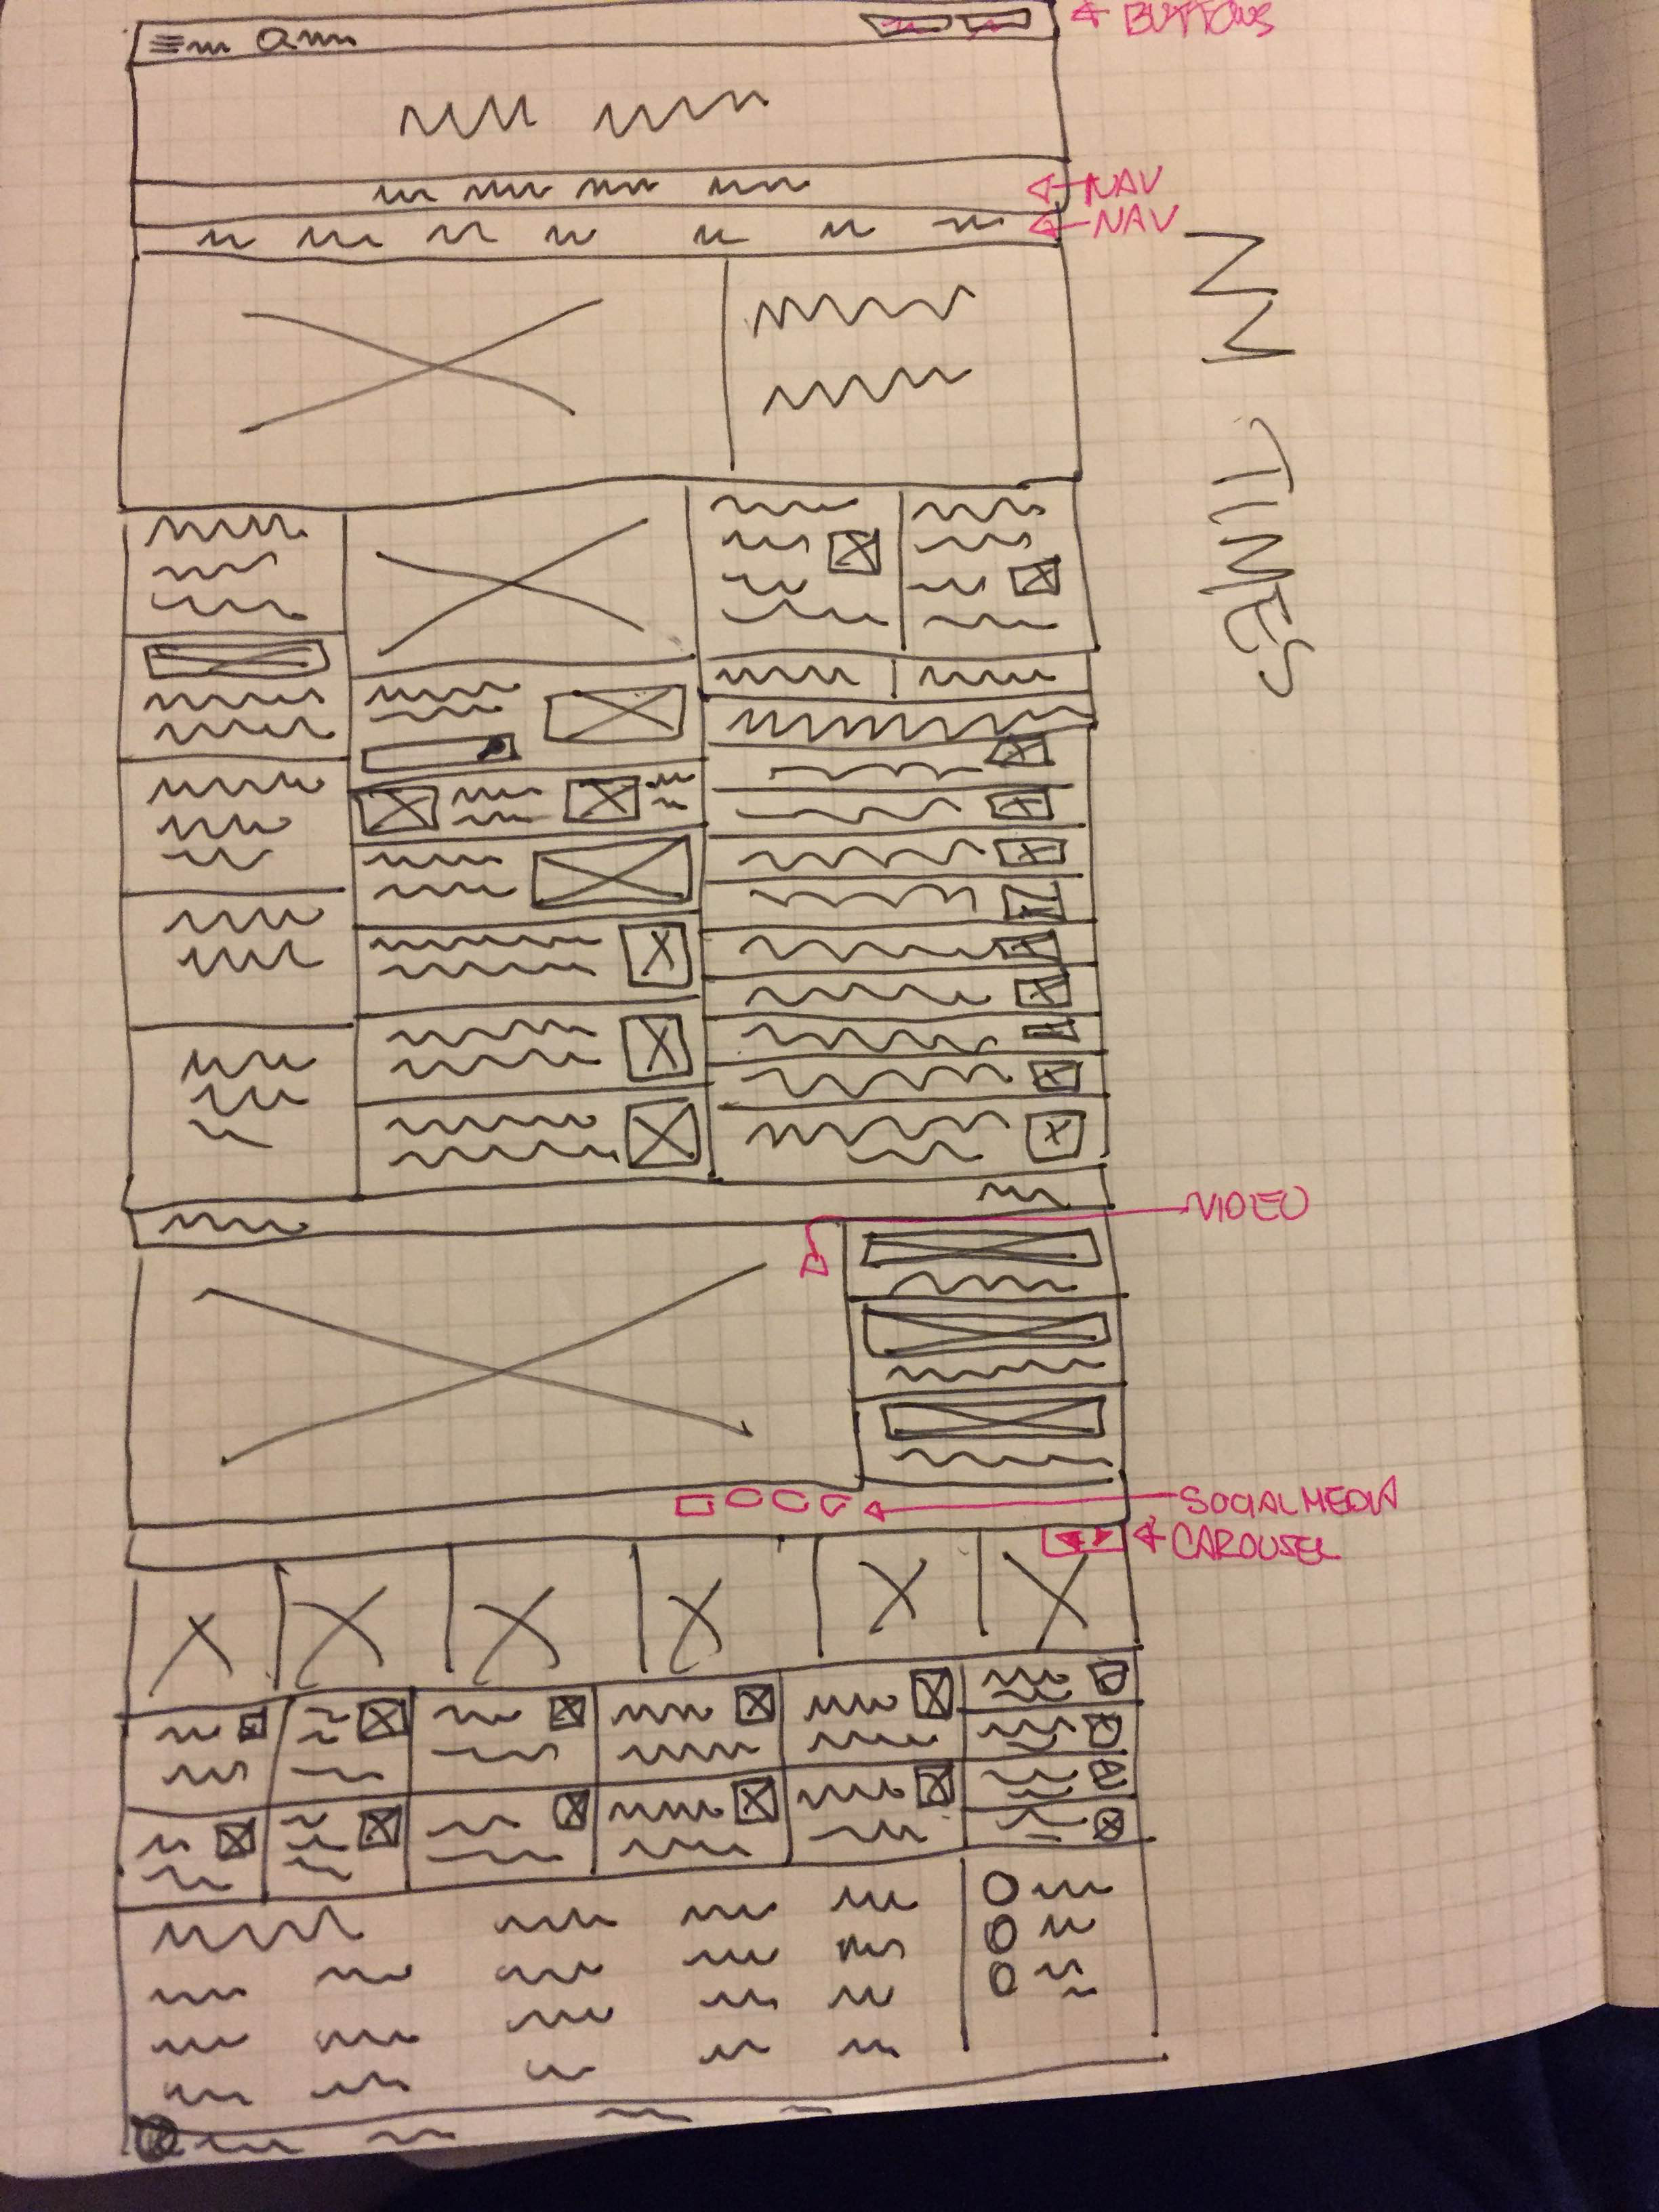 BUTTONS
NAV
NAV
NY TIMES
VIDEO
SOCIAL MEDIA
CAROUSEL